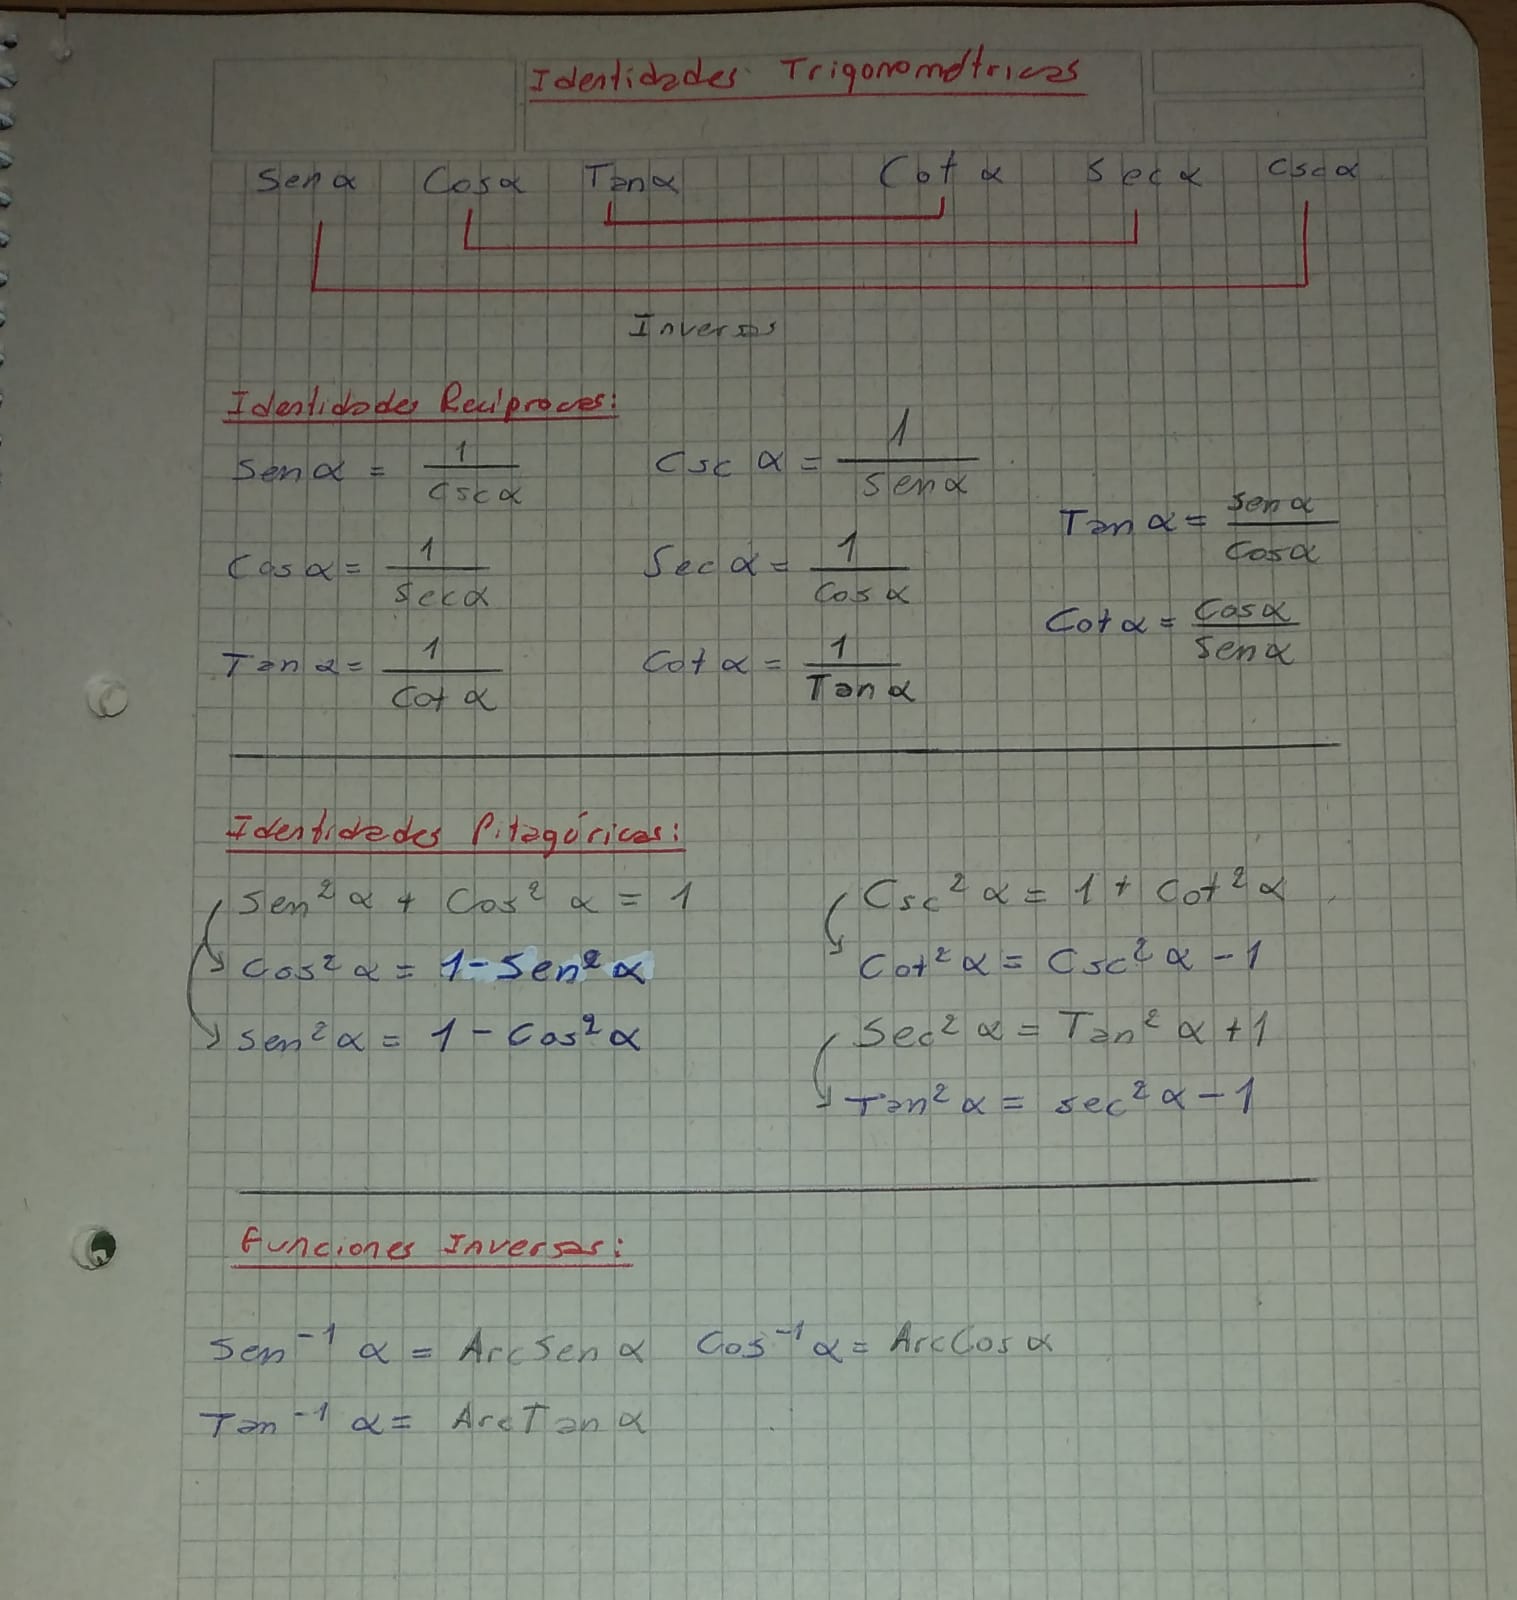 Identidades Trigonométricas
Sen α Cos α Tan α Cot α Sec α Csc α
Inversas
Identidades Recíprocas:
Sen α = 1/Csc α Csc α = 1/Sen α
Tan α = Sen α/Cos α
Cos α = 1/Sec α Sec α = 1/Cos α
Cot α = Cos α/Sen α
Tan α = 1/Cot α Cot α = 1/Tan α
Identidades Pitagóricas:
Sen² α + Cos² α = 1 Csc² α = 1 + Cot² α
Cos² α = 1 - Sen² α Cot² α = Csc² α - 1
Sen² α = 1 - Cos² α Sec² α = Tan² α + 1
Tan² α = sec² α - 1
Funciones Inversas:
Sen⁻¹ α = ArcSen α Cos⁻¹ α = ArcCos α
Tan⁻¹ α = ArcTan α